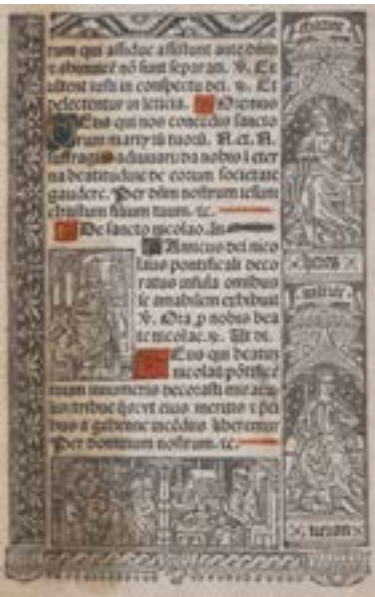 rum qui assidue assistunt ante dñm
et abinuicē nō sunt separati. ℣. Ex
ultent iusti in conspectu dei. ℟. Et
delectentur in leticia. Oremus
Deus qui nos concedis sancto
rum martyrū tuorū. N. et. N.
suffragiis adiuuari da nobis i eter
na beatitudine de eorum societate
gaudere. Per dñm nostrum iesum
christum filium tuum. ꝛc.
De sancto nicolao. añ
Amicus dei nico
laus pontificali deco
ratus infula omnibus
se amabilem exhibuit
℣. Ora p nobis bea
te nicolae. ℟. Ut di.
Deus qui beatum
nicolaū pōtificē
tuum innumeris decorasti miracu
lis: tribue
eius meritis et
bus a gehenne incēdiis liberemur
Per dominum nostrum. ꝛc.